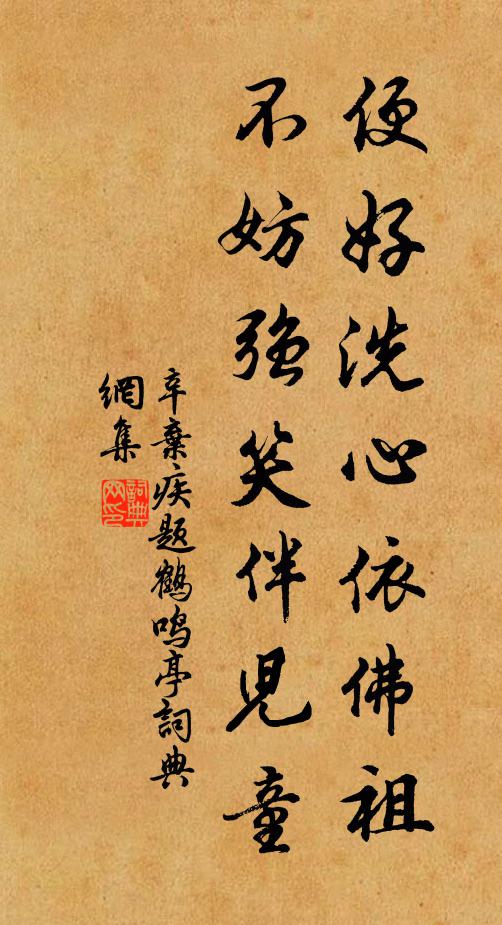 便好洗心依佛祖
不妨強笑伴兒童
辛棄疾題鶴鳴亭詞典
網集
詞典網印